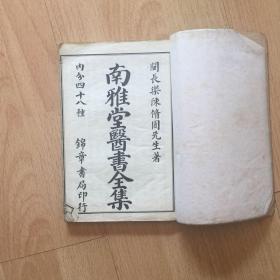 閩長樂陳修園先生著
南雅堂醫書全集
內分四十八種
錦章書局印行